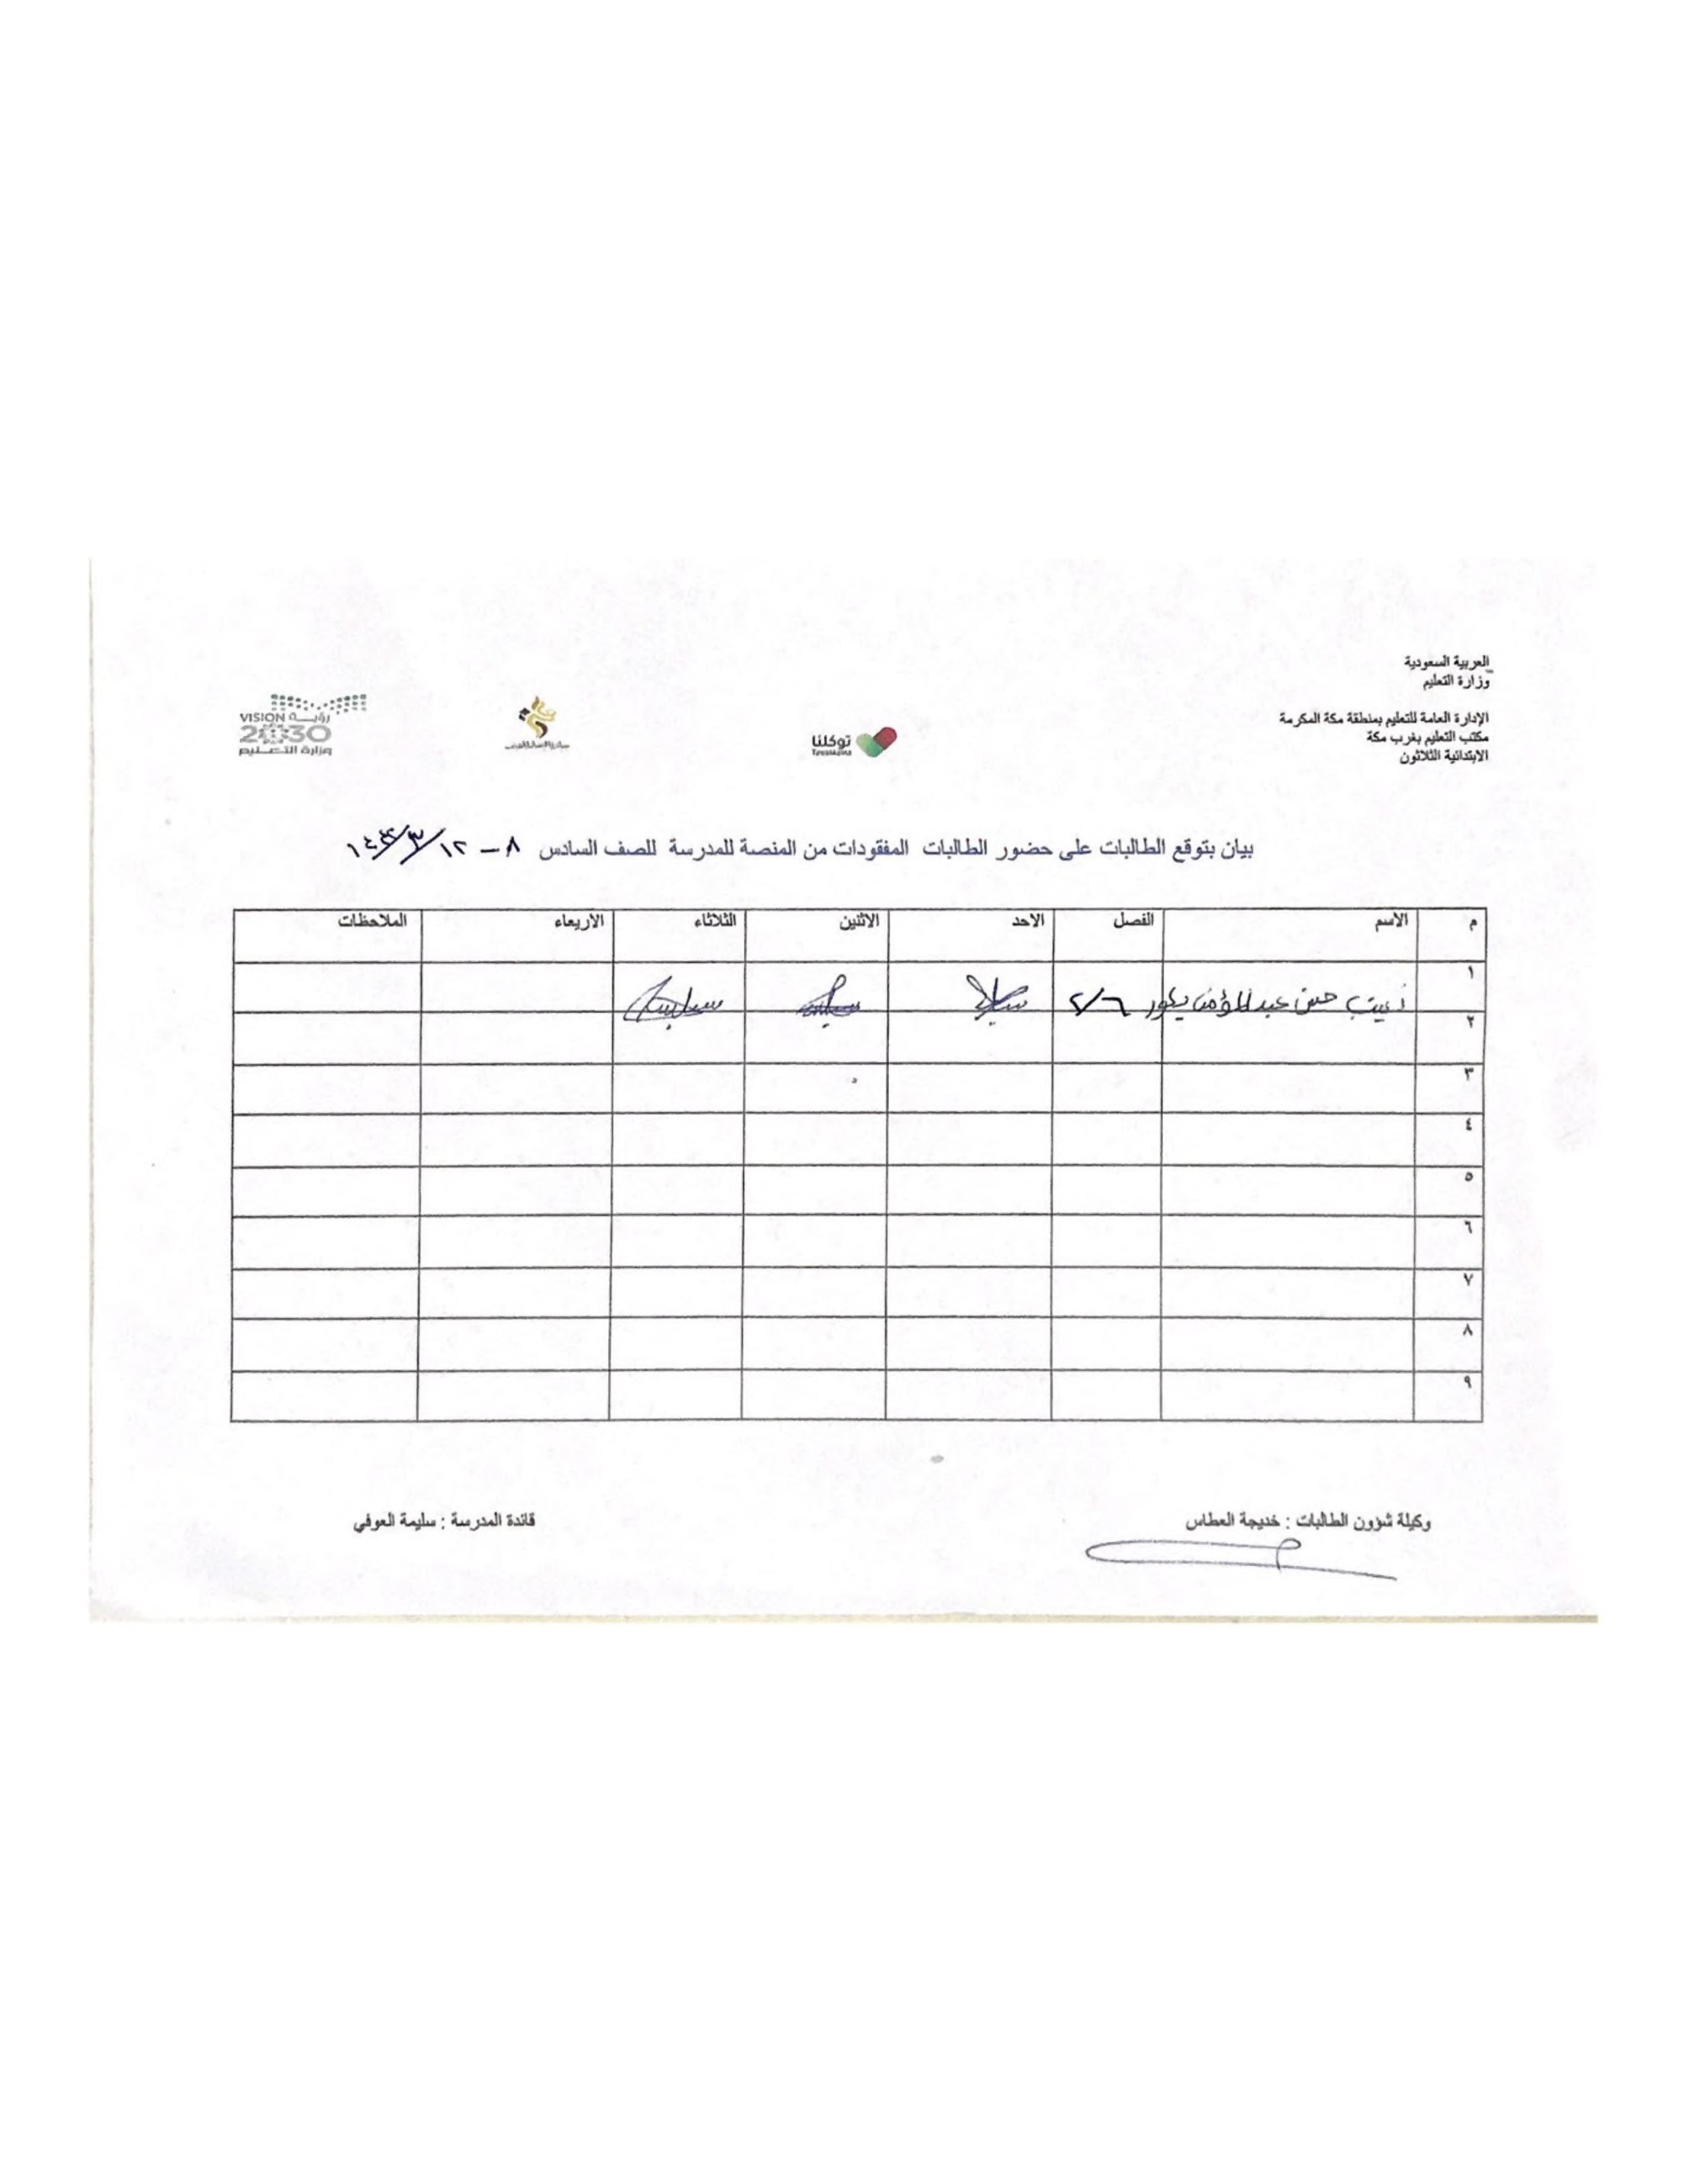 العربية السعودية
وزارة التعليم
الإدارة العامة للتعليم بمنطقة مكة المكرمة
مكتب التعليم بغرب مكة
الابتدائية الثلاثون
توكلنا
Tawakkalna
VISION رؤيــة
2030
وزارة التعـــليم
بيان بتوقع الطالبات على حضور الطالبات المفقودات من المنصة للمدرسة للصف السادس ٨ – ١٢/٣/١٤٤٣
م الاسم الفصل الاحد الاثنين الثلاثاء الاربعاء الملاحظات
١ حسن عبد المؤمن ٢/٦
٢
٣
٤
٥
٦
٧
٨
٩
وكيلة شؤون الطالبات : خديجة العطاس
قائدة المدرسة : سليمة العوفي